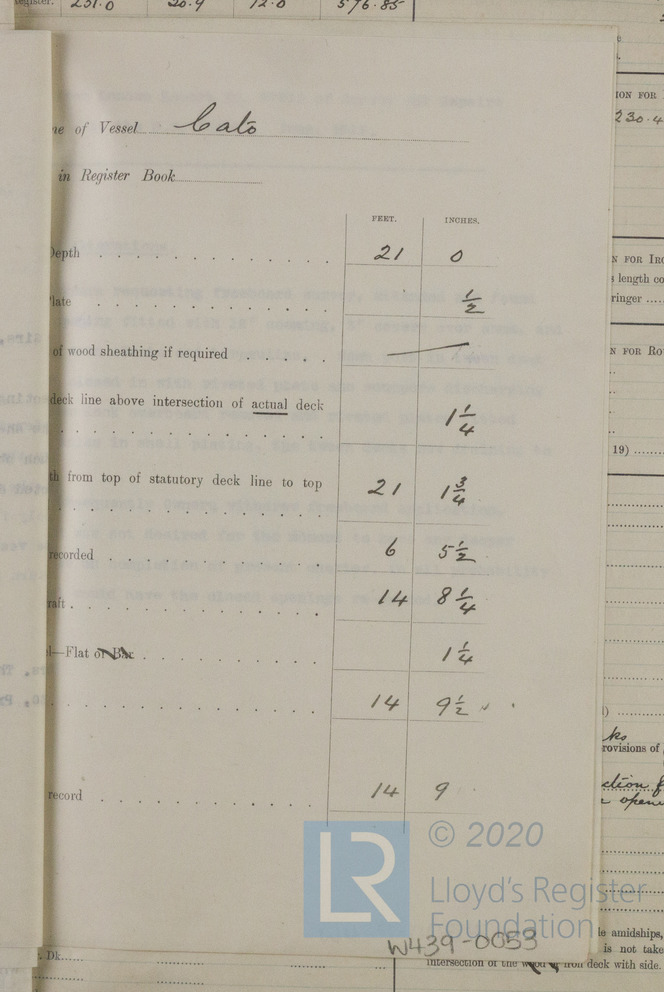 Register. 251.0 12.0 576.85
ne of Vessel Cato
in Register Book
FEET. INCHES.
Depth 21 0
late 1/2
of wood sheathing if required —
deck line above intersection of actual deck
1 1/4
th from top of statutory deck line to top
21 1 3/4
recorded 6 5 1/2
raft 14 8 1/4
l—Flat or Bar 1 1/4
14 9 1/2
record 14 9
ION FOR
230.4
N FOR IRO
s length co
ringer
N FOR RO
19)
ks
rovisions of
ction f
openi
le amidships,
is not take
intersection of the wood or iron deck with side.
. Dk.
LR
© 2020
Lloyd's Register
Foundation
W439-0053